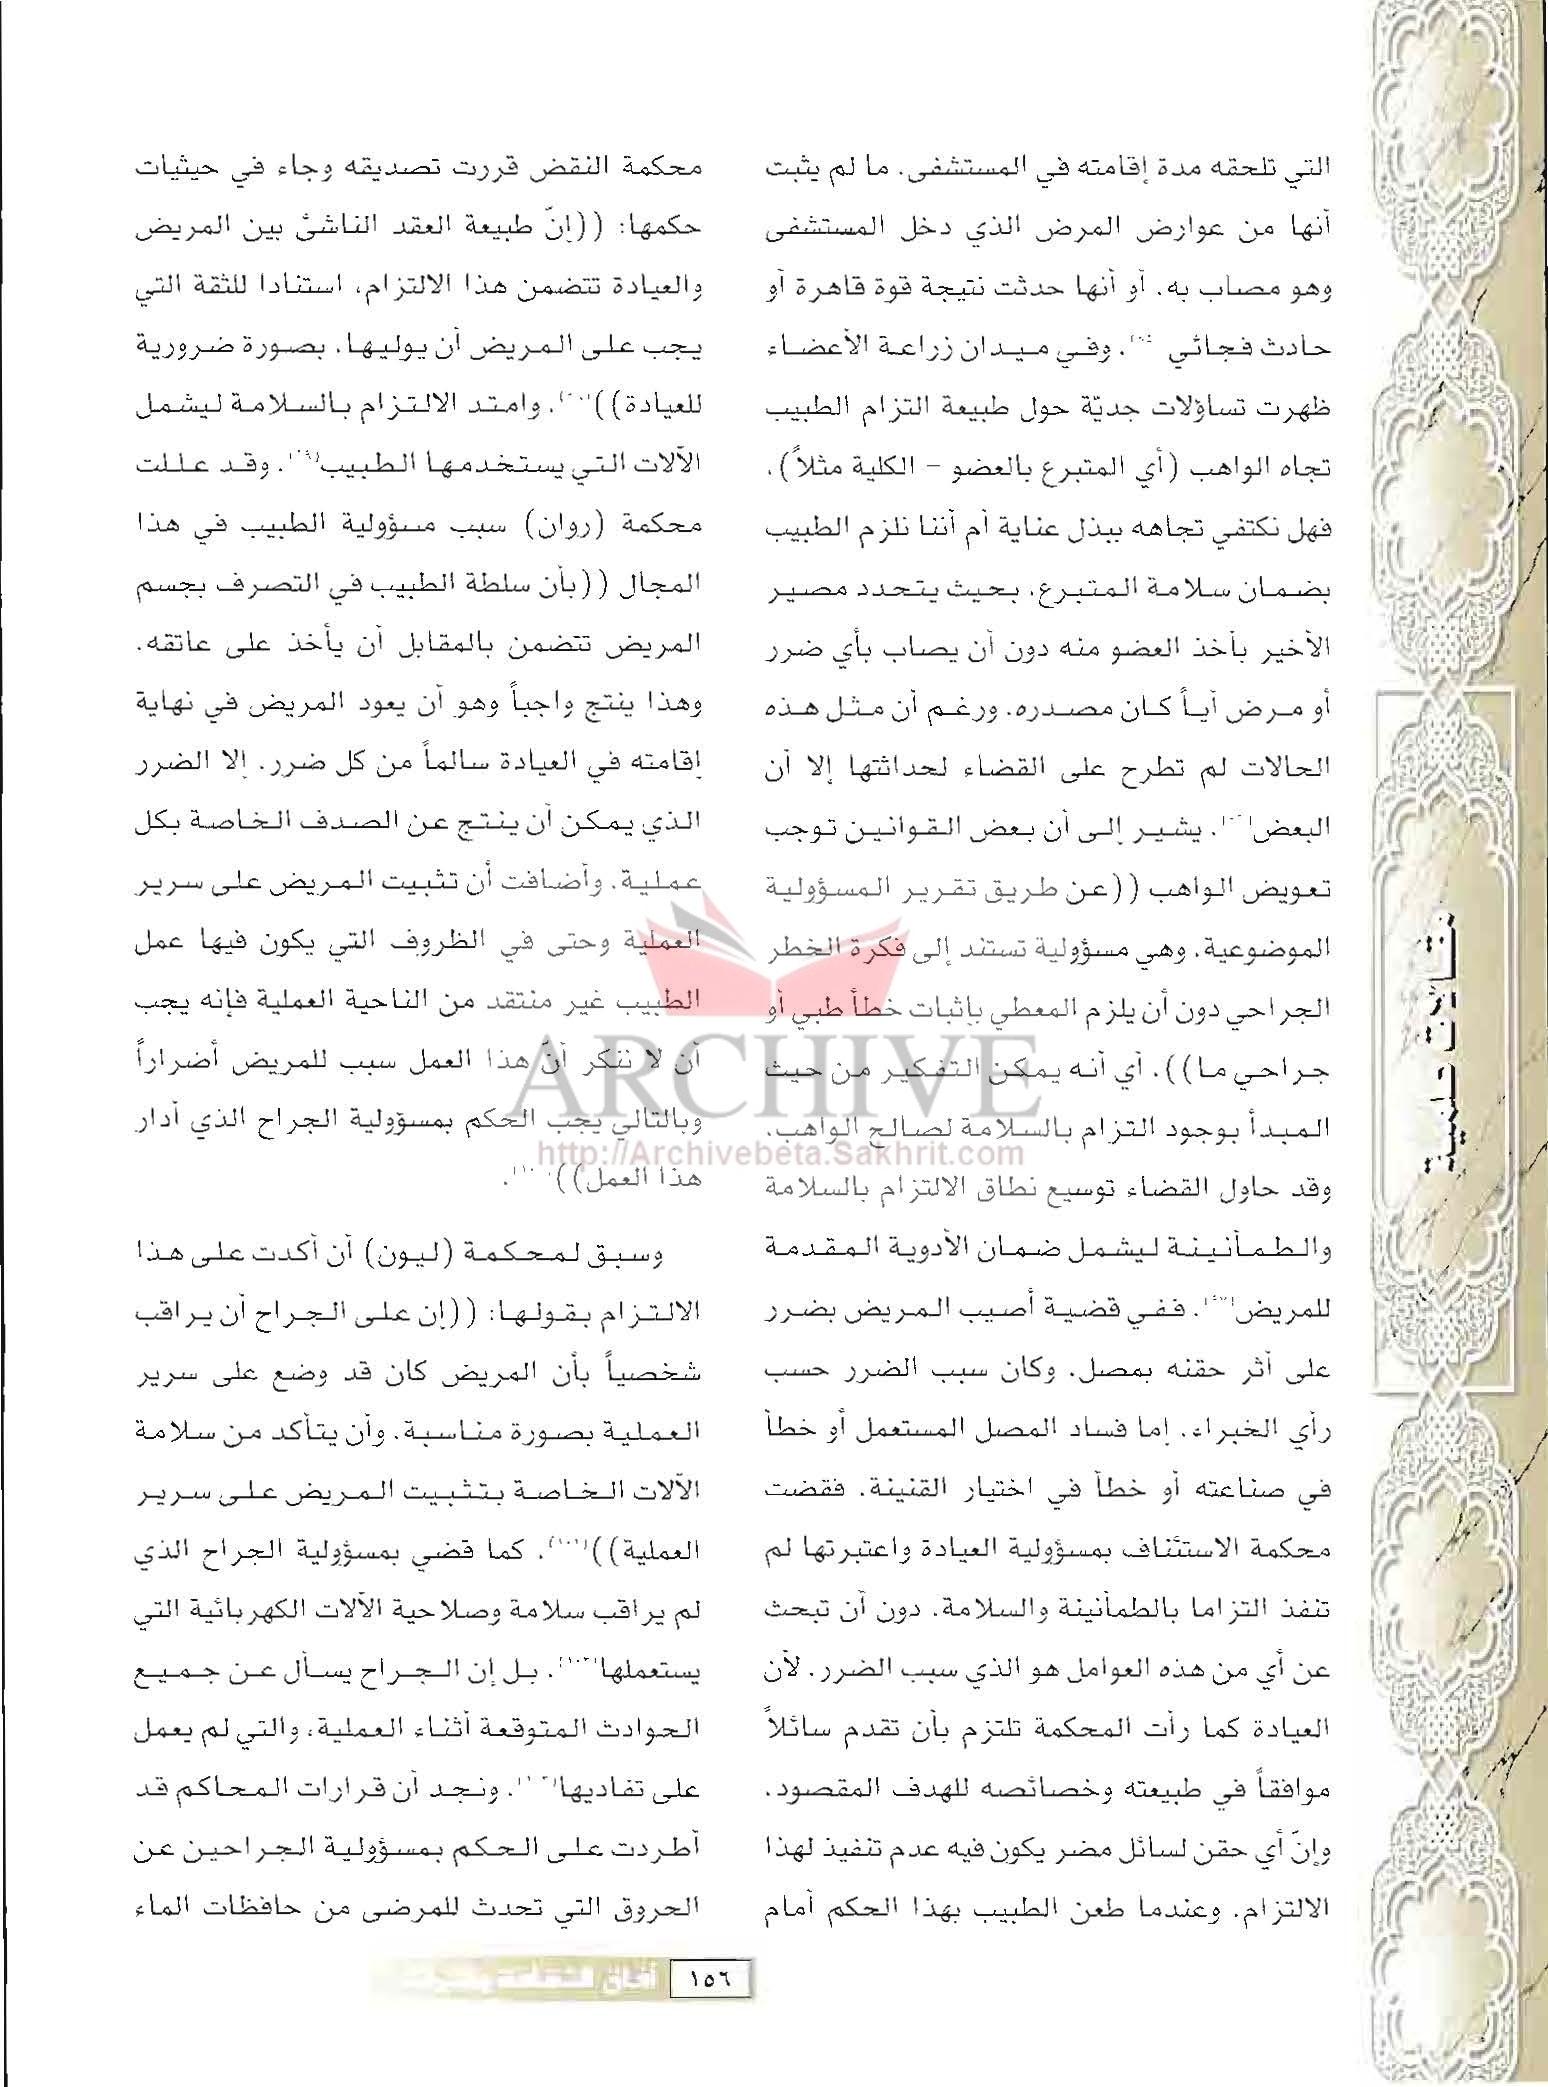 التي تلحقه مدة إقامته في المستشفى. ما لم يثبت
أنها من عوارض المرض الذي دخل المستشفى
وهو مصاب به. أو أنها حدثت نتيجة قوة قاهرة أو
حادث فجائي . وفي ميدان زراعة الأعضاء
ظهرت تساؤلات جديّة حول طبيعة التزام الطبيب
تجاه الواهب (أي المتبرع بالعضو - الكلية مثلاً).
فهل نكتفي تجاهه ببذل عناية أم أننا نلزم الطبيب
بضمان سلامة المتبرع. بحيث يتحدد مصير
الأخير بأخذ العضو منه دون أن يصاب بأي ضرر
أو مرض أياً كان مصدره. ورغم أن مثل هذه
الحالات لم تطرح على القضاء لحداثتها إلا أن
البعض. يشير إلى أن بعض القوانين توجب
تعويض الواهب ((عن طريق تقرير المسؤولية
الموضوعية. وهي مسؤولية تستند إلى فكرة الخطر
الجراحي دون أن يلزم المعطي بإثبات خطأ طبي أو
جراحي ما)). أي أنه يمكن التفكير من حيث
المبدأ بوجود التزام بالسلامة لصالح الواهب.
وقد حاول القضاء توسيع نطاق الالتزام بالسلامة
والطمأنينة ليشمل ضمان الأدوية المقدمة
للمريض. ففي قضية أصيب المريض بضرر
على أثر حقنه بمصل. وكان سبب الضرر حسب
رأي الخبراء. إما فساد المصل المستعمل أو خطأ
في صناعته أو خطأ في اختيار القنينة. فقضت
محكمة الاستئناف بمسؤولية العيادة واعتبرتها لم
تنفذ التزاما بالطمأنينة والسلامة. دون أن تبحث
عن أي من هذه العوامل هو الذي سبب الضرر. لأن
العيادة كما رأت المحكمة تلتزم بأن تقدم سائلاً
موافقاً في طبيعته وخصائصه للهدف المقصود.
وإنّ أي حقن لسائل مضر يكون فيه عدم تنفيذ لهذا
الالتزام. وعندما طعن الطبيب بهذا الحكم أمام
محكمة النقض قررت تصديقه وجاء في حيثيات
حكمها: ((إنّ طبيعة العقد الناشئ بين المريض
والعيادة تتضمن هذا الالتزام، استنادا للثقة التي
يجب على المريض أن يوليها. بصورة ضرورية
للعيادة)). وامتد الالتزام بالسلامة ليشمل
الآلات التي يستخدمها الطبيب. وقد عللت
محكمة (روان) سبب مسؤولية الطبيب في هذا
المجال ((بأن سلطة الطبيب في التصرف بجسم
المريض تتضمن بالمقابل أن يأخذ على عاتقه.
وهذا ينتج واجباً وهو أن يعود المريض في نهاية
إقامته في العيادة سالماً من كل ضرر. إلا الضرر
الذي يمكن أن ينتج عن الصدف الخاصة بكل
عملية. وأضافت أن تثبيت المريض على سرير
العملية وحتى في الظروف التي يكون فيها عمل
الطبيب غير منتقد من الناحية العملية فإنه يجب
أن لا ننكر أنّ هذا العمل سبب للمريض أضراراً
وبالتالي يجب الحكم بمسؤولية الجراح الذي أدار
هذا العمل)).
وسبق لمحكمة (ليون) أن أكدت على هذا
الالتزام بقولها: ((إن على الجراح أن يراقب
شخصياً بأن المريض كان قد وضع على سرير
العملية بصورة مناسبة. وأن يتأكد من سلامة
الآلات الخاصة بتثبيت المريض على سرير
العملية)). كما قضي بمسؤولية الجراح الذي
لم يراقب سلامة وصلاحية الآلات الكهربائية التي
يستعملها. بل إن الجراح يسأل عن جميع
الحوادث المتوقعة أثناء العملية، والتي لم يعمل
على تفاديها. ونجد أن قرارات المحاكم قد
أطردت على الحكم بمسؤولية الجراحين عن
الحروق التي تحدث للمرضى من حافظات الماء
ARCHIVE
http://Archivebeta.Sakhrit.com
١٥٦